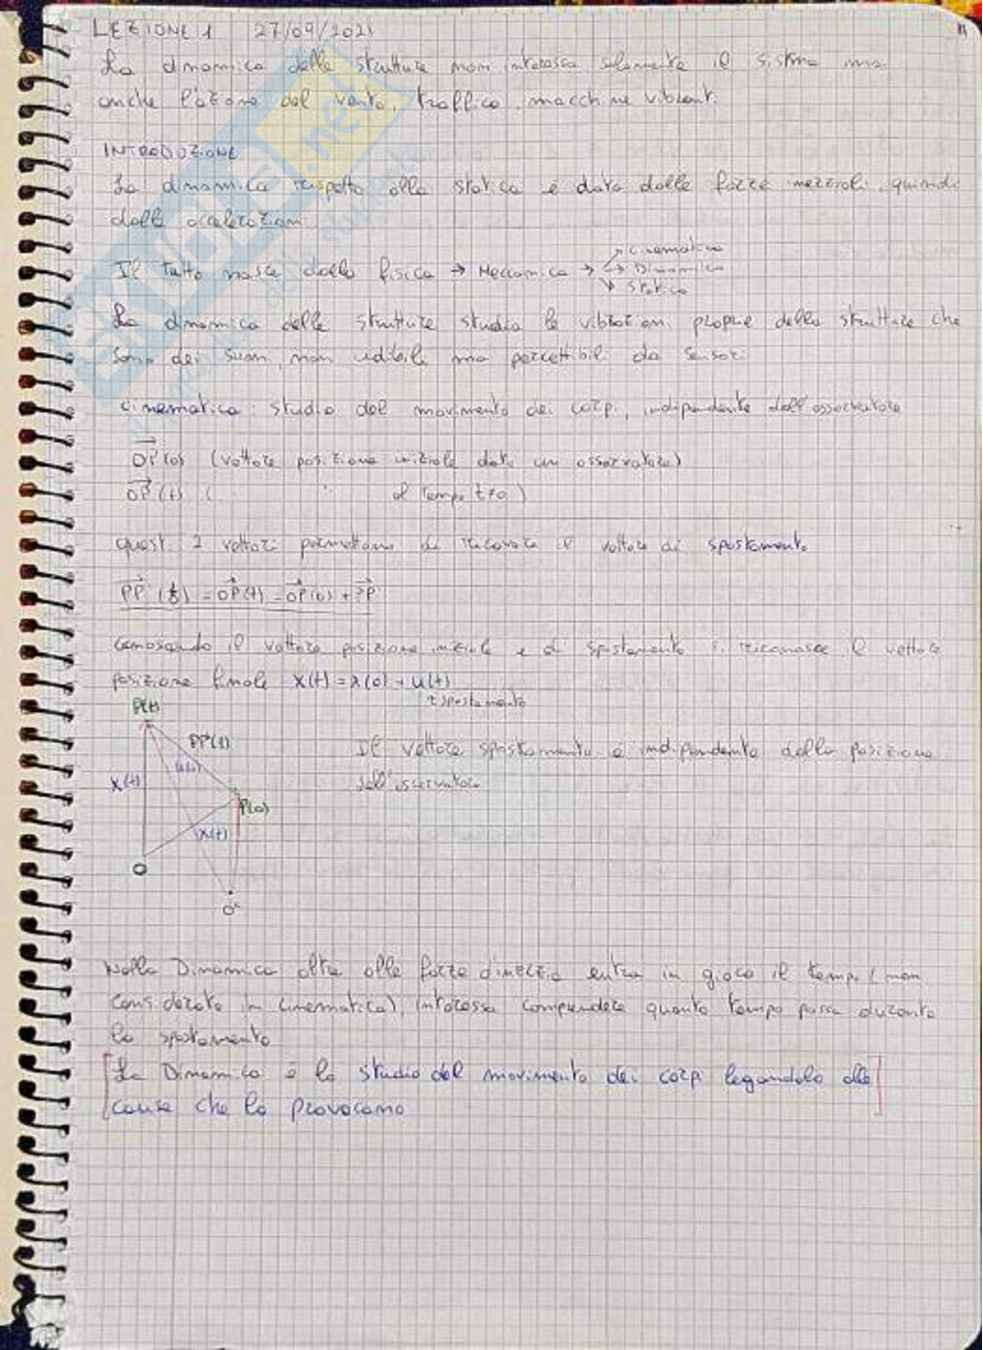 LEZIONE 1 27/09/2021
La dinamica delle strutture non interessa solamente il sisma ma
anche l'azione del vento, traffico, macchine vibranti.
INTRODUZIONE
La dinamica rispetto alla statica è data dalle forze inerziali, quindi
dalle accelerazioni
Il tutto nasce dalla fisica → Meccanica → Cinematica
→ Dinamica
Statica
La dinamica delle strutture studia le vibrazioni proprie delle strutture che
sono dei suoni, non udibili ma percettibili da sensori
Cinematica: studio del movimento dei corpi, indipendente dall'osservatore
OP(0) (vettore posizione iniziale dato un osservatore)
OP(t) ( al tempo t≠0)
questi 2 vettori permettono di ricavare il vettore di spostamento
PP (t) = OP(t) - OP(0) + PP
Conoscendo il vettore posizione iniziale e di spostamento si riconosce il vettore
posizione finale x(t) = x(0) + u(t)
spostamento
P(t)
PP(t)
u(t)
x(t)
P(0)
x(t)
O
O*
Il vettore spostamento è indipendente dalla posizione
dell'osservatore
Nella Dinamica oltre alle forze d'inerzia entra in gioco il tempo (non
considerato in cinematica), interessa comprendere quanto tempo passa durante
lo spostamento
La Dinamica è lo studio del movimento dei corpi legandolo alle
cause che lo provocano
skuola.net